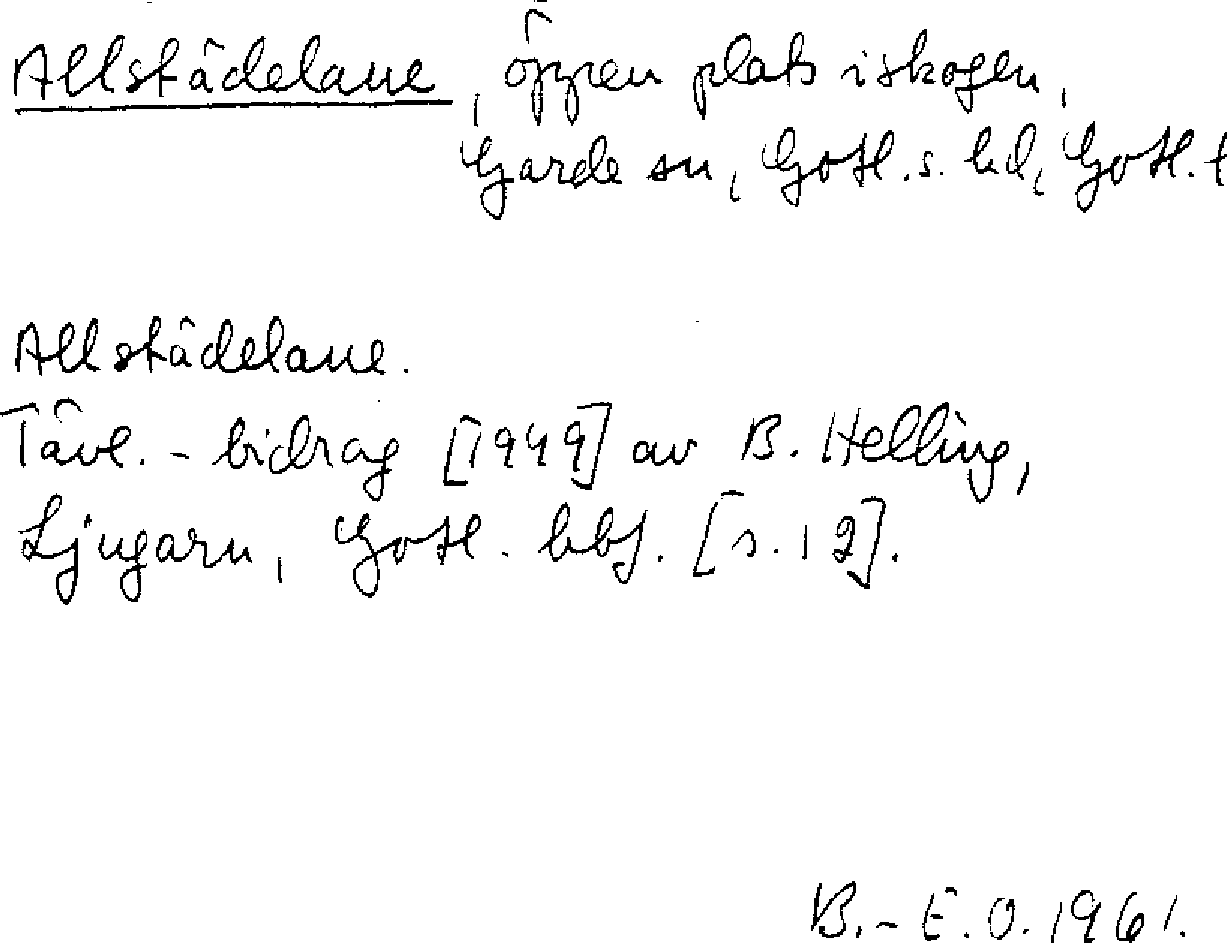 Allstädelaue, öppen plats i skogen,
Garde sn, Gotl. s. hd, Gotl. l
Allstädelaue.
Tävl.-bidrag [1949] av B. Helling,
Ljugarn, Gotl. hbf. [s. 12].
B.-E. O. 1961.